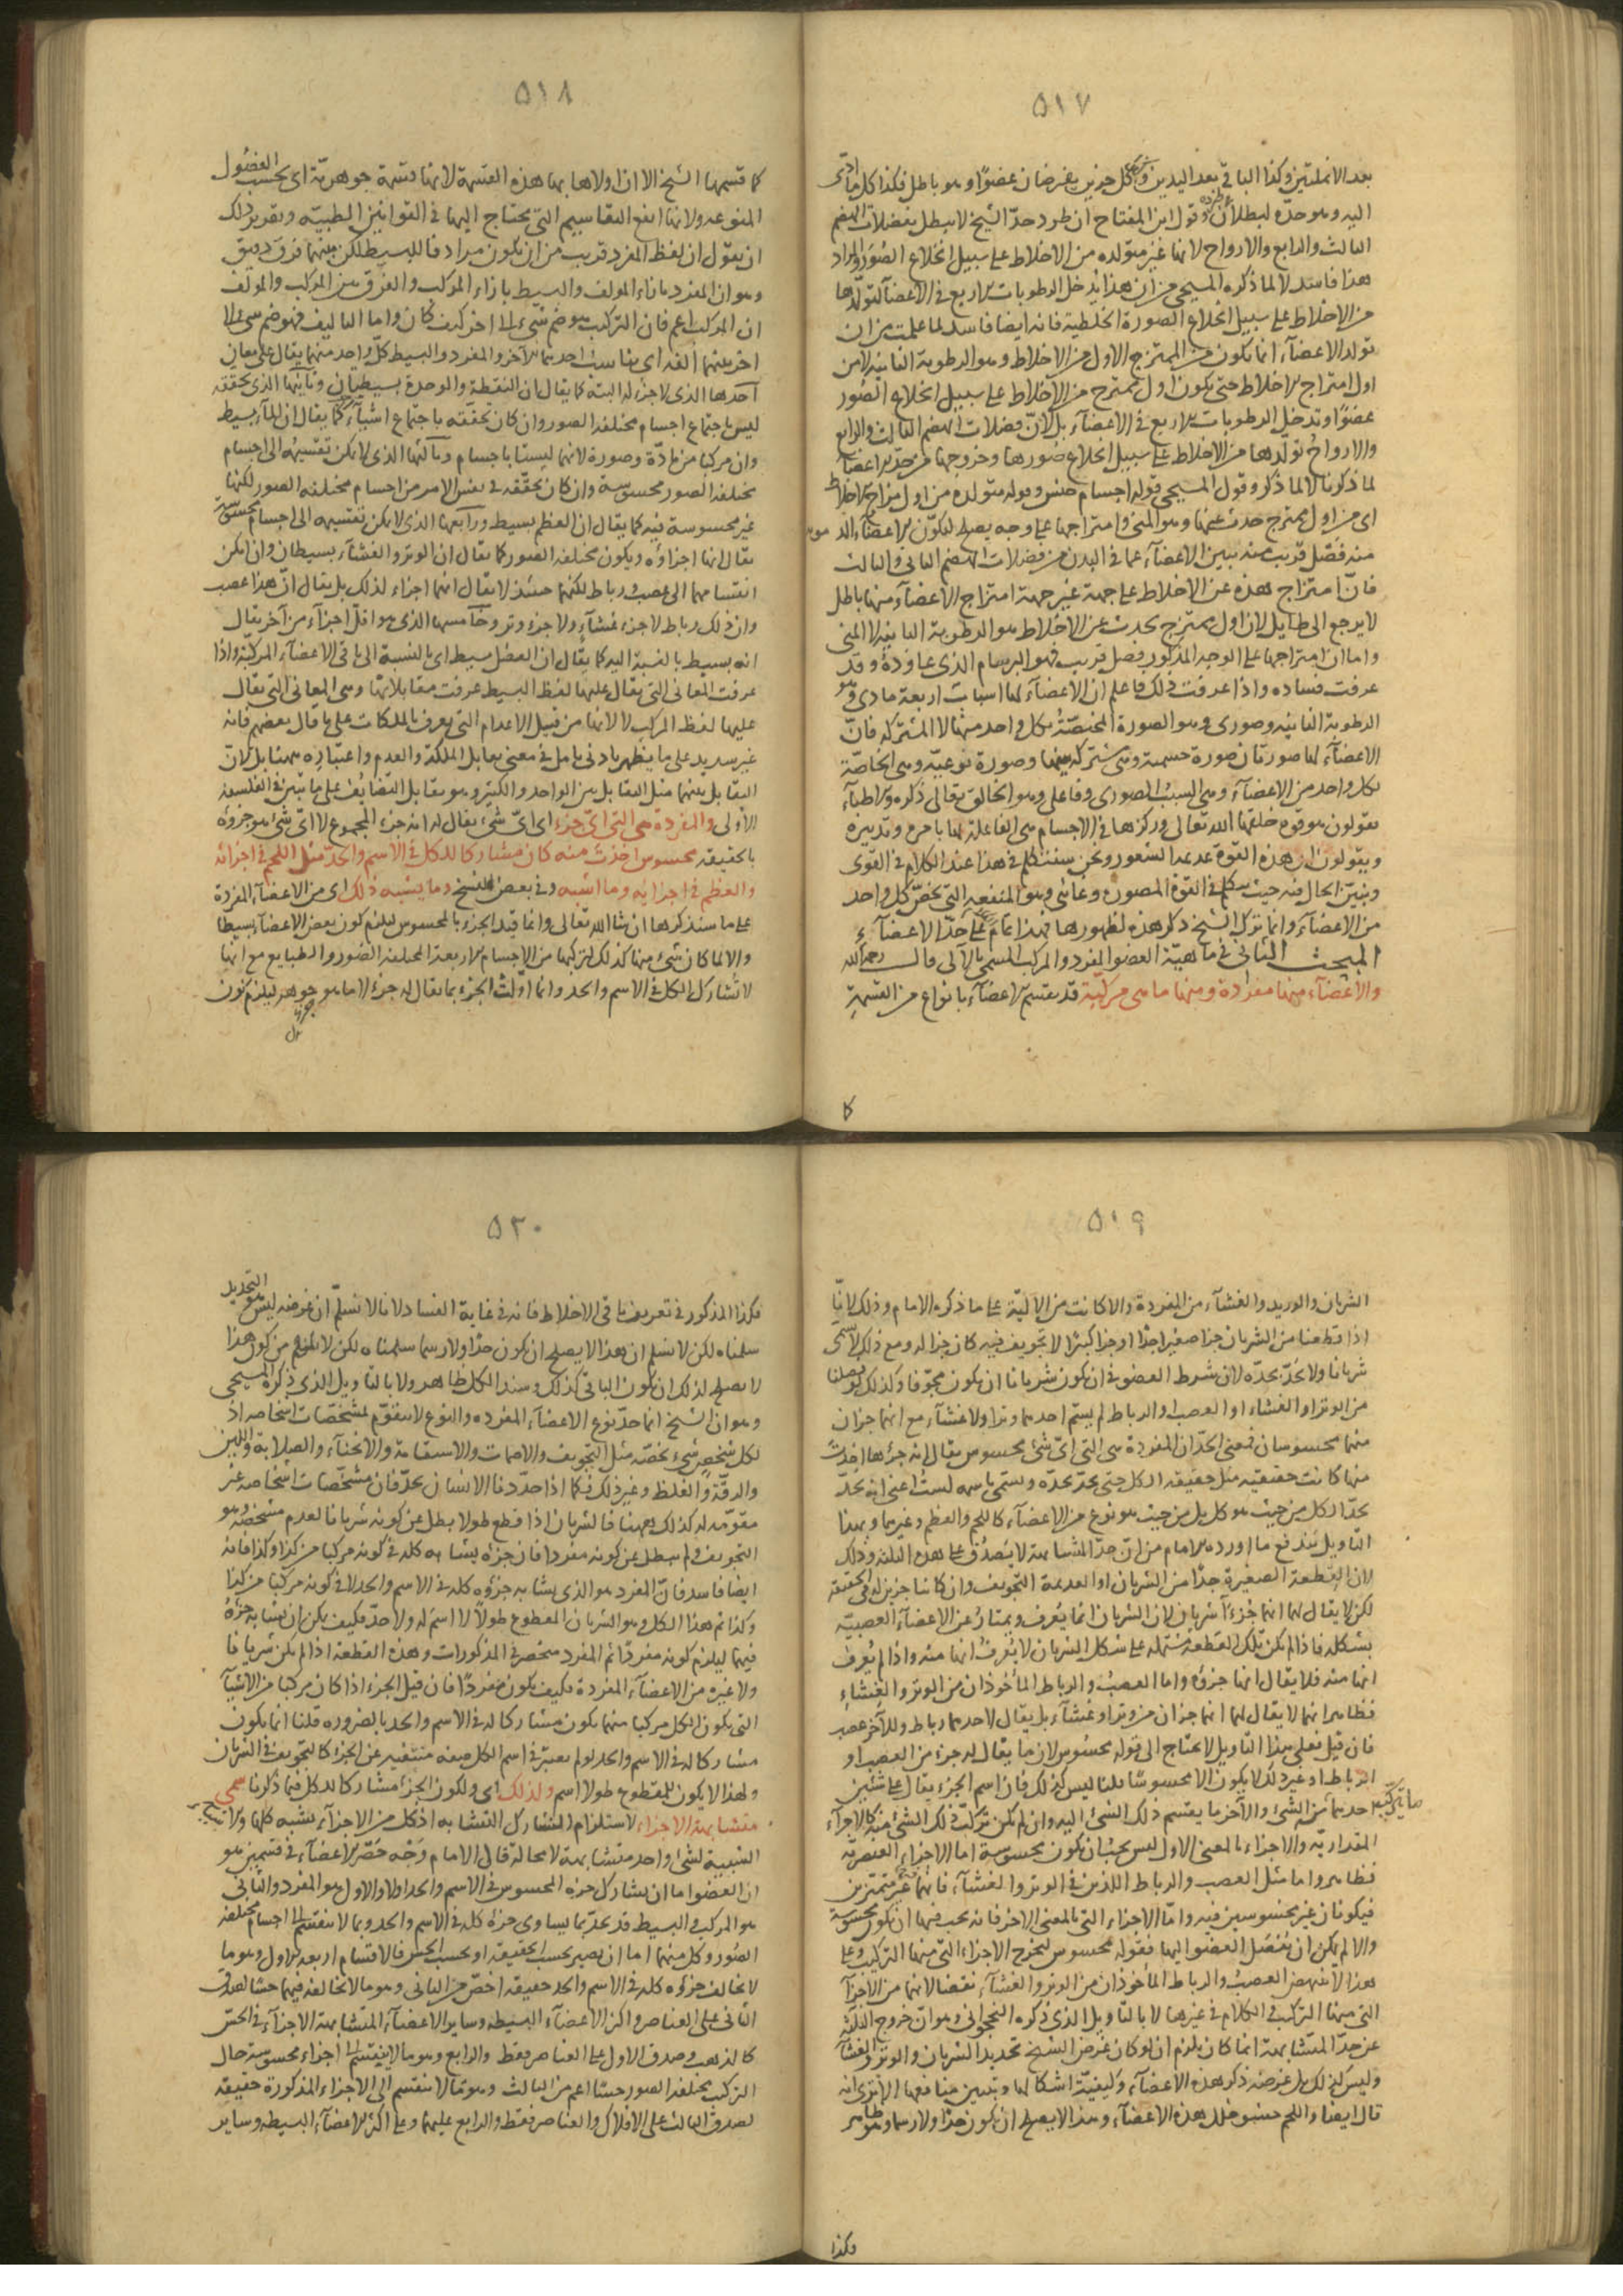 ٥١٧
بعد الانملتين وكذا الباقي بعد اليدين وكل جزين يفرضان عضوًا وهو باطل فكذا كل ما ادى
اليه وهو حدّه لبطلان قول ابن المفتاح ان طرد حدّ الشيخ لا يبطل بفضلات الهضم
الثالث والرابع والارواح لانها غير متولده من الاخلاط على سبيل انخلاع الصُّوَر والمراد
هذا فاسد لا لما ذكره المسيحي من ان هذا يُدخل الرطوبات الاربع في الاعضآ لتولّدها
من الاخلاط على سبيل انخلاع الصورة الخلطية فانه ايضا فاسد لما علمت من ان
تولد الاعضآء انما يكون من الممتزج الاول من الاخلاط وهو الرطوبة الثانية لا من
اول امتزاج الاخلاط حتى يكون اول ممتزج من الاخلاط على سبيل انخلاع الصُّوَر
عضوًا وتدخل الرطوبات الاربع في الاعضآء بل لانّ فضلات الهضم الثالث والرابع
والارواح تولّدها من الاخلاط على سبيل انخلاع صورها وخروجها من حدّ الاعضآ
لما ذكرنا لا لما ذكر وقول المسيحي قوله اجسام جنس وقوله متولده من اول مزاج الاخلاط
اى من اول ممتزج حدث عنها وهو المني وامتزاجها على وجه يصلح لتكوّن الاعضآء الذ
منه فصل قريب منه تبين الاعضآء عما في البدن من فضلات الهضم الثاني والثالث
فانّ امتزاج هذه عن الاخلاط على جهة غير جهة امتزاج الاعضآء منها باطل
لا يرجع الى طايل لان اول ممتزج يحدث عن الاخلاط هو الرطوبة الثانية لا المني
واما ان امتزاجها على الوجه المذكور فصل قريب فهو البرسام الذي عاوده وقد
عرفت فساده واذا عرفت ذلك فاعلم ان الاعضآء لها اسباب اربعة مادى وهو
الرطوبة الثانيه وصورى وهو الصورة المختصّة بكل واحد منها لا المشتركه فانّ
الاعضآء لها صورتان صورة جسمية وهى مشتركه بينها وصورة نوعيّه وهى الخاصّة
بكل واحد من الاعضآء وهى السبب الصورى وفاعلى وهو الخالق تعالى ذكره والاطبآء
يقولون هو قوة خلقها الله تعالى وركزها في الاجسام هى الفاعلة لها بامره وتدبيره
ويقولون ان هذه القوة عديمة الشعور ونحن سنتكلم في هذا عند الكلام في القوى
ونبيّن الحال فيه حيث نتكلم في القوة المصوره وغائى وهو المنفعة التي تخصّ كل واحد
من الاعضآء وانما ترك الشيخ ذكر هذه لظهورها فهذا تمام على حدّ الاعضآء
المبحث الثاني في ماهيّة العضو المفرد والمركب المسمى بالآلى قال رحمه الله
والاعضآء منها مفردة ومنها ما هى مركبة قد يقسم الاعضآء بانواع من القسمة
كا
٥١٨
كما قسمها الشيخ الا ان اولاها بها هذه القسمة لانها قسمة جوهريّة اى بحسب الفصول
المنوعه ولانها انفع التقاسيم التي يحتاج اليها في القوانين الطبيّه وتقرير ذلك
ان نقول ان لفظ المفرد قريب من ان يكون مرادفا للبسيط لكن بينهما فرق دقيق
وهو ان المفرد بازاء المولف والبسيط بازاء المركب والفرق بين المركب والمولف
ان المركب اعم فان التركيب هو ضم شيء الى اخر كيف كان واما التاليف فهو ضم شي الى
اخر بينهما الفه اى يناسب احدهما الآخر والمفرد والبسيط كلّ واحد منهما يقال على معانٍ
آحدها الذى لا جزء له البتة كما يقال ان النقطة والوحدة بسيطان وثانيها الذى تحققه
ليس باجتماع اجسام مختلفة الصور وان كان تحققه باجتماع اشيآء كما يقال ان المآء بسيط
وان مركبا من مادّة وصورة لانهما ليستا باجسام وثالثها الذى لا يمكن تقسيمه الى اجسام
مختلفة الصور محسوسة وان كان تحقّقه في نفس الامر من اجسام مختلفه الصور لكنها
غير محسوسة فيه كما يقال ان العظم بسيط ورابعها الذى لا يمكن تقسيمه الى اجسام محسوسة
يقال انها اجزاؤه ويكون مختلفة الصور كما يقال ان الوتر والغشآء بسيطان وان امكن
انقسامهما الى عصب ورباط لكنهما حينئذ لا يقال انهما اجزاء لذلك بل يقال انّ هذا عصب
وان ذلك رباط لا جزء غشآء ولا جزء وتر وخآمسها الذى هو اقلّ اجزآء من آخر يقال
انه بسيط بالنسبة اليه كما يقال ان العضل بسيط اى بالنسبة الى باقي الاعضآء المركّبة واذا
عرفت المعاني التي يقال عليها لفظ البسيط عرفت مقابلاتها وهى المعاني التي يقال
عليها لفظ المركب لا لانها من قبيل الاعدام التي يعرف بالملكات على ما قال بعضهم فانه
غير سديد على ما يظهر بادنى تامل في معنى تقابل الملكة والعدم واعتباره ههنا بل لانّ
التقابل بينهما مثل التقابل بين الواحد والكثير وهو تقابل التضايُف على ما تبيّن في الفلسفه
الاُولى والمفردة هى التي اىّ جزء اى اىّ شيء يقال له انه جزء المجموع لا اىّ شيء هو جزوه
بالحقيقه محسوس اخذت منه كان مشاركا للكل في الاسم والحدّ مثل اللحم في اجزائه
والعظم في اجزائه وما اشبه وفي بعض النسخ وما يشبه ذلك اى من الاعضآء المفردة
على ما سنذكرها ان شا الله تعالى وانما قيّد الجزء بالمحسوس ليلزم كون بعض الاعضآء بسيطا
والا لما كان شيء منها كذلك لتركبها من الاجسام الاربعة المختلفة الصور والطبايع مع انها
لا تشارك الكل في الاسم والحد وانما اوّلت الجزء بما يقال له جزء لا ما هو جوهر ليلزم كون
٥١٩
الشريان والوريد والغشآء من المفردة والا كانت من الآليّة على ما ذكره الامام وذلك لانّا
اذا قطعنا من الشريان جزا صغيرا جدّا او جزا كبيرًا لا تجويف فيه كان جزا له ومع ذلك لا يُسمّى
شريانا ولا يُحدّ بحدّه لان شرط العضو في ان يكون شريانا ان يكون مجوّفا وكذلك لو فصلنا
من الوتر او الغشاء او العصب والرباط لم يسمّ احدهما وترا ولا غشآء مع انهما جزان
منهما محسوسان فمعنى الحدّ ان المفردة هى التي اىّ شيء محسوس يقال انه جزءها اخذت
منها كانت حقيقته مثل حقيقه الكل حتى يحدّ بحدّه ويسمّى باسمه لستُ اعني انه يحدّ
بحدّ الكل من حيث هو كل بل من حيث هو نوع من الاعضآء كاللحم والعظم وغيرهما وبهذا
التاويل يندفع ما اورده الامام من انّ حدّ المتشابهة لا يَصدُق على هذه الثلثه وذلك
لان القطعة الصغيرة جدًّا من الشريان او العديمة التجويف وان كانتا جزين له في الحقيقه
لكن لا يقال لهما انهما جُزءا شريان لان الشريان انما يُعرف ويمتاز عن الاعضآء العصبيّه
بشكله فاذا لم يكن تلك القطعة مشتمله على شكل الشريان لا يُعرفُ انها منه واذا لم يُعرف
انها منه فلا يقال انها جزؤه واما العصبُ والرباط المأخوذان من الوتر والغشاءِ
فظاهر انهما لا يقال لهما انهما جزان من وتر او غشآء بل يقال لاحدهما رباط وللآخر عصب
فان قيل فعلى هذا التاويل لا يحتاج الى قوله محسُوس لان ما يقال له جزء من العصب او
الرباط او غير ذلك لا يكون الا محسوسًا قلنا ليس كذلك فان اسم الجزء يقال على شئين
احدهما ما يتركب منه الشيء والآخر ما يقتسم ذلك الشيء اليه وان لم يكن تركّبُ ذلك الشيء منه كالاجزآء
المقداريّه والاجزاء بالمعنى الاول ليس يجب ان يكون محسوسة اما الاجزاء العنصريّه
فظاهر واما مثل العصب والرباط اللذين في الوتر والغشآء فانهما غير متميزين
فيكونان غير محسوسين فيه وامّا الاجزاء التي بالمعنى الاخر فانه يجب فيها ان يكون محسوسة
والا لم يمكن ان يُفصل العضو اليها فقوله محسوس ليخرج الاجزاء التي منها التركيب وعلى
هذا لا ينتهض العصبُ والرباط المأخوذان من الوتر والغشآء نقضا لانهما من الاجزآء
التي منها التركّب في الكلام في غيرها لا بالتاويل الذى ذكره النخجوانى وهو انّ خروج الثلثه
عن حدّ المتشابهة انما كان يلزم ان لو كان غرض الشيخ تحديد الشريان والوتر والغشآء
وليس كذلك بل غرضه ذكر هذه الاعضآء وكيفيّة اشكالها وتبيين منافعها الا ترى انه
قال ايضا واللحم حشو خلل هذه الاعضآء وهذا لا يصلح ان يكون حدًا ولا رسما وهو ظاهر
فكذا
٥٢٠
فكذا المذكور في تعريف باقي الاخلاط فانه في غاية الفساد لانا لا نسلّم ان غرضه ليس هو التحديد
سلمناه لكن لا نسلم ان هذا لا يصلح ان يكون حدًّا ولا رسما سلمناه لكن لا يلزم من كون هذا
لا يصلح لذلك ان يكون الباقي كذلك وسند الكل ظاهر ولا بالتاويل الذى ذكره المسيحي
وهو ان الشيخ انما حدّ نوع الاعضآء المفرده والنوع لا يتقوّم بمشخّصات اشخاصه اذ
لكل شخصٍ شيء يخصّه مثل التجويف والاصمات والاستقامة والانحنآء والصّلابة واللين
والدقّة والغلظ وغير ذلك فكما اذا حدّدنا الانسان بحدّ فان مشخّصات اشخاصه غير
مقوّمه له كذلك ههنا فالشريان اذا قطع طولا بطل عن كونه شريانا لعدم مشخصه وهو
التجويف ولم يبطل عن كونه مفردا فان جزءه يشابه كله في كونه مركبا من كذا وكذا فانه
ايضا فاسد فانّ المفرد هو الذى يشابه جزؤه كله في الاسم والحد لا في كونه مركبا من كذا
وكذا ثم هذا الكل وهو الشريان المقطوع طولًا لا اسم له ولا حدّ فكيف يمكن ان يشابه جزءه
فيهما ليلزم كونه مفردًا ثم المفرد منحصر في المذكورات وهذه القطعة اذا لم يكن شريانا
ولا غيره من الاعضآء المفردة فكيف يكون مفردًا فان قيل الجزء اذا كان مركبا من الاشيآء
التي يكون الكل مركبا منها يكون مشاركا له في الاسم والحد بالضروره قلنا انما يكون
مشاركا له في الاسم والحد لو لم يعتبر في اسم الكل صفه منتفيه عن الجزء كالتجويف في الشريان
ولهذا لا يكون للمقطوع طولا اسم ولذلك اى ولكون الجزء مشاركا للكل فيما ذكرنا سمى
متشابهة الاجزاء لاستلزام التشارك التشابه اذ كل من الاجزآء يشبه كلها والا
الشبيهة لشيء واحد متشابهة لا محالة قال الامام وَجه حَصْر الاعضآء في قسمين هو
ان العضو اما ان يشارك جزءه المحسوس في الاسم والحد اولا والاول هو المفرد والثاني
هو المركب والبسيط قد يحدّ بما يساوى جزءه كله في الاسم والحد وبما لا ينقسم الى اجسام مختلفه
الصُور وكل منهما اما ان يصير بحسب الحقيقه او بحسب الحسّ فالاقسام اربعه الاول وهو ما
لا يخالف جزؤه كله في الاسم والحد حقيقه اخصّ من الثاني وهو ما لا يخالفه فيهما حسّا لصدق
الثاني على العناصر واكثر الاعضآء البسيطه وساير الاعضآء المتشابهة الاجزآء في الحسّ
كالذهب وصدق الاول على العناصر فقط والرابع وهو ما لا ينقسم الى اجزاء محسوسة حال
التركّب مختلفة الصور حسّا اعم من الثالث وهو ما لا ينقسم الى الاجزاء المذكورة حقيقه
لصدق الثالث على الافلاك والعناصر فقط والرابع عليهما وعلى اكثر الاعضآء البسيطه وساير